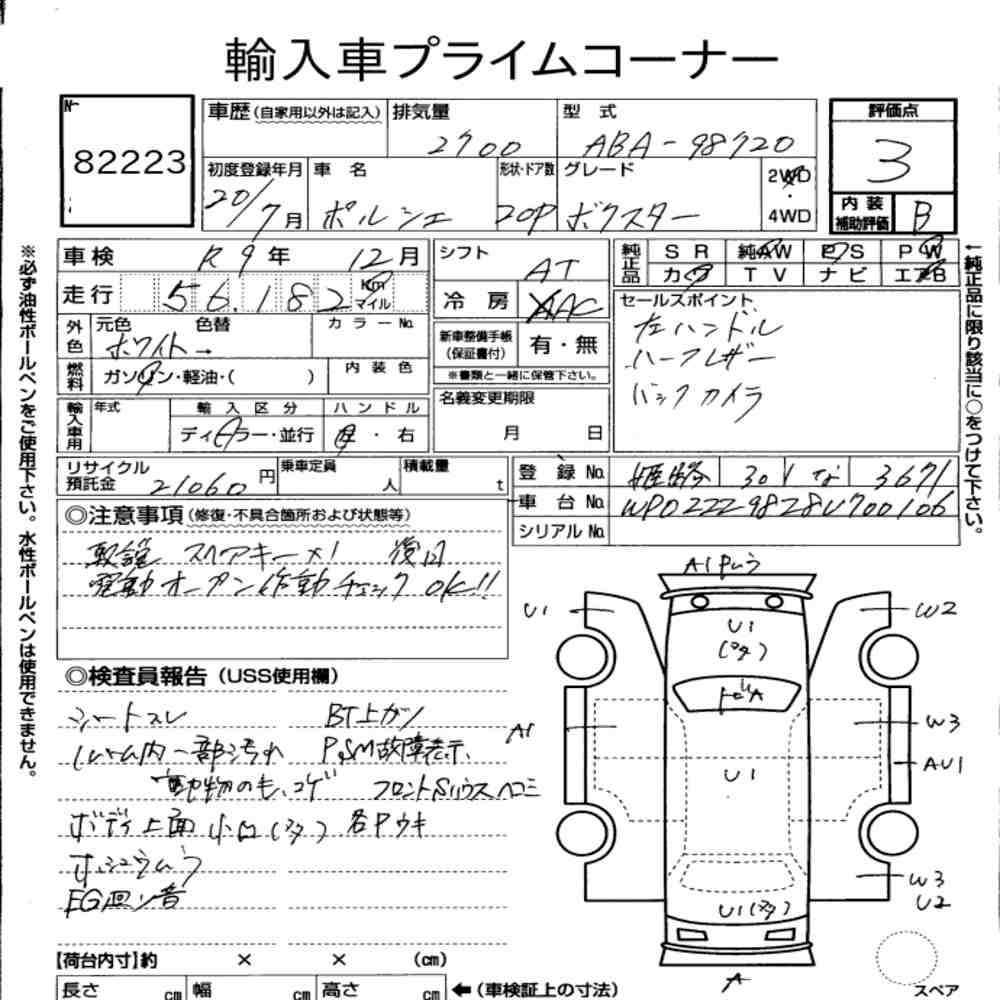 輸入車プライムコーナー
No 82223
車歴 (自家用以外は記入) 排気量 2700 型式 ABA-98720
初度登録年月 20/7月 車名 ポルシェ 形状・ドア数 20P グレード ボクスター 2WD・4WD
評価点 3
内装補助評価 B
車検 R9年 12月
走行 56,182 Km マイル
外色 元色 ホワイト→ 色替 カラーNo.
燃料 ガソリン・軽油・( ) 内装色
輸入車用 年式 輸入区分 ディーラー・並行 ハンドル 左・右
シフト AT
冷房 AAC
新車整備手帳(保証書付) 有・無
※書類と一緒に保管下さい。
名義変更期限 月 日
純正品 SR 純AW PS PW
カワ TV ナビ エアB
セールスポイント
左ハンドル
ハーフレザー
バックカメラ
リサイクル預託金 21060円 乗車定員 人 積載量 t
登録No. 姫路 301 な 3671
車台No. WP0ZZZ98Z8U700106
シリアルNo.
◎注意事項(修復・不具合箇所および状態等)
取説 スペアキー×1 後日
電動オープン作動チェックOK!!
◎検査員報告(USS使用欄)
シートスレ BT上ガリ
内一部汚れ PSM故障表示
コゲ フロントSハウスヘコミ
ボディ上面小凹 各Pウキ
EG
【荷台内寸】約 × × (cm)
長さ cm 幅 cm 高さ cm ←(車検証上の寸法)
A1
U1 W2
U1
A
A1 W3
U1 AU1
W3
U2
U1
A
スペア
※必ず油性ボールペンをご使用下さい。水性ボールペンは使用できません。
↑純正品に限り該当に○をつけて下さい。